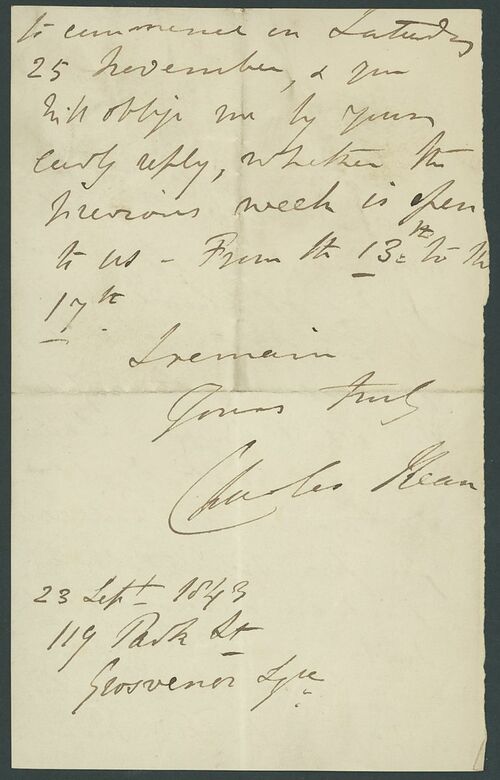 to commence on Saturday
25 November, & you
will oblige me by your
early reply, whether the
previous week is open
to us - From the 13th to the
17th
I remain
Yours truly
Charles Kean
23 Sept 1843
119 Park St
Grosvenor Sqre